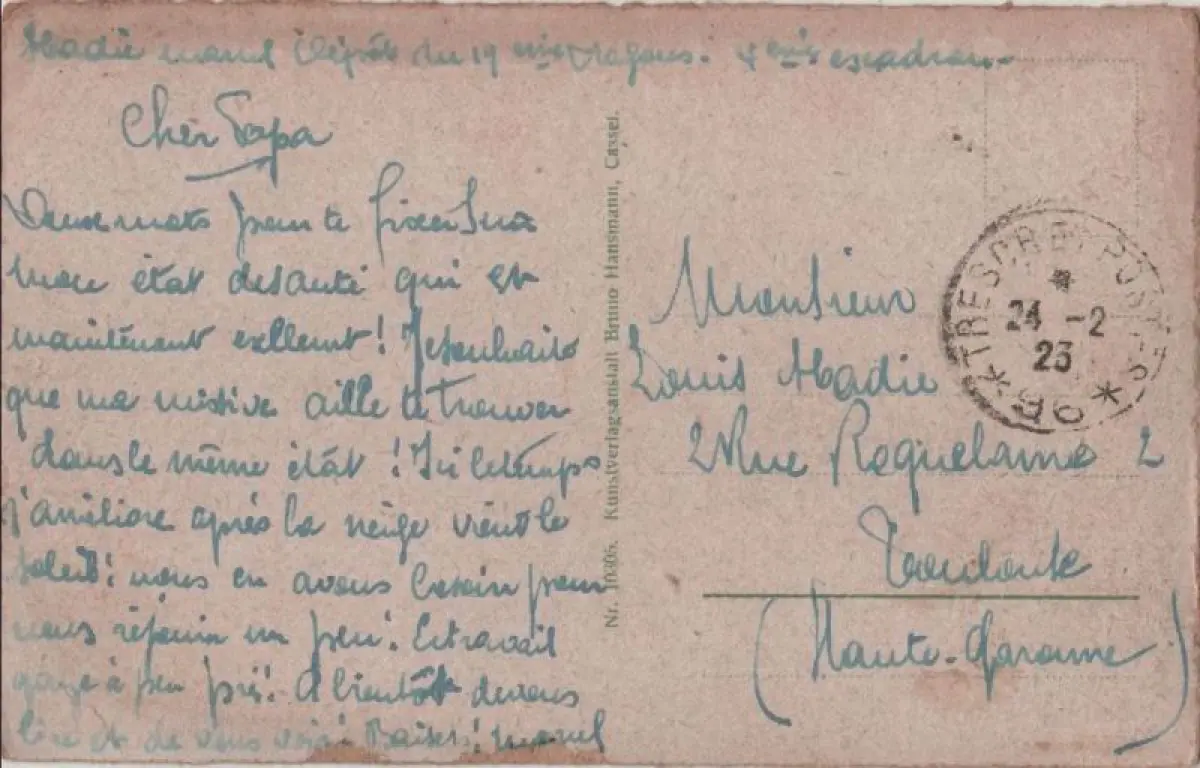 Abadie marcel Dépôt du 19ème Dragons. 4ème escadron.
Cher Papa
Deux mots pour te fixer sur
mon état desanté qui est
maintenant exllent! Jesouhaite
que ma missive aille te trouver
dansle même état! Ici letemps
s'améliore après la neige vientle
soleil! nous en avons besoin pour
nous réjouir un peu! Letravail
gaze à peu près! A bientôt devous
lire et de vous voir! Baisers! marcel
Nr. 10306. Kunstverlagsanstalt Bruno Hansmann, Cassel.
TRESOR ET POSTES
24 -2
23
Monsieur
Louis Abadie
2 Rue Roquelaine 2
Toulouse
(Haute-Garonne)